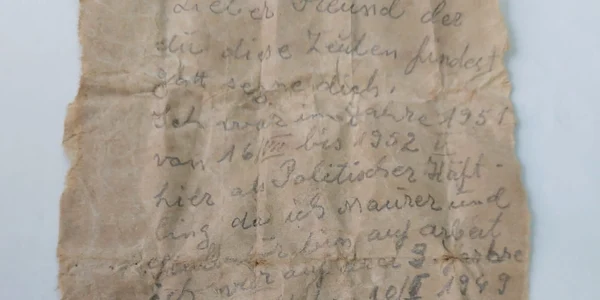 Lieber Freund der
du diese Zeilen findest
Gott segne dich.
Ich war im Jahre 1951
von 16 VII bis 1952 II
hier als Politischer Häft-
ling da ich Maurer und
bin auf arbeit
ich war auf drei
10/I 1949